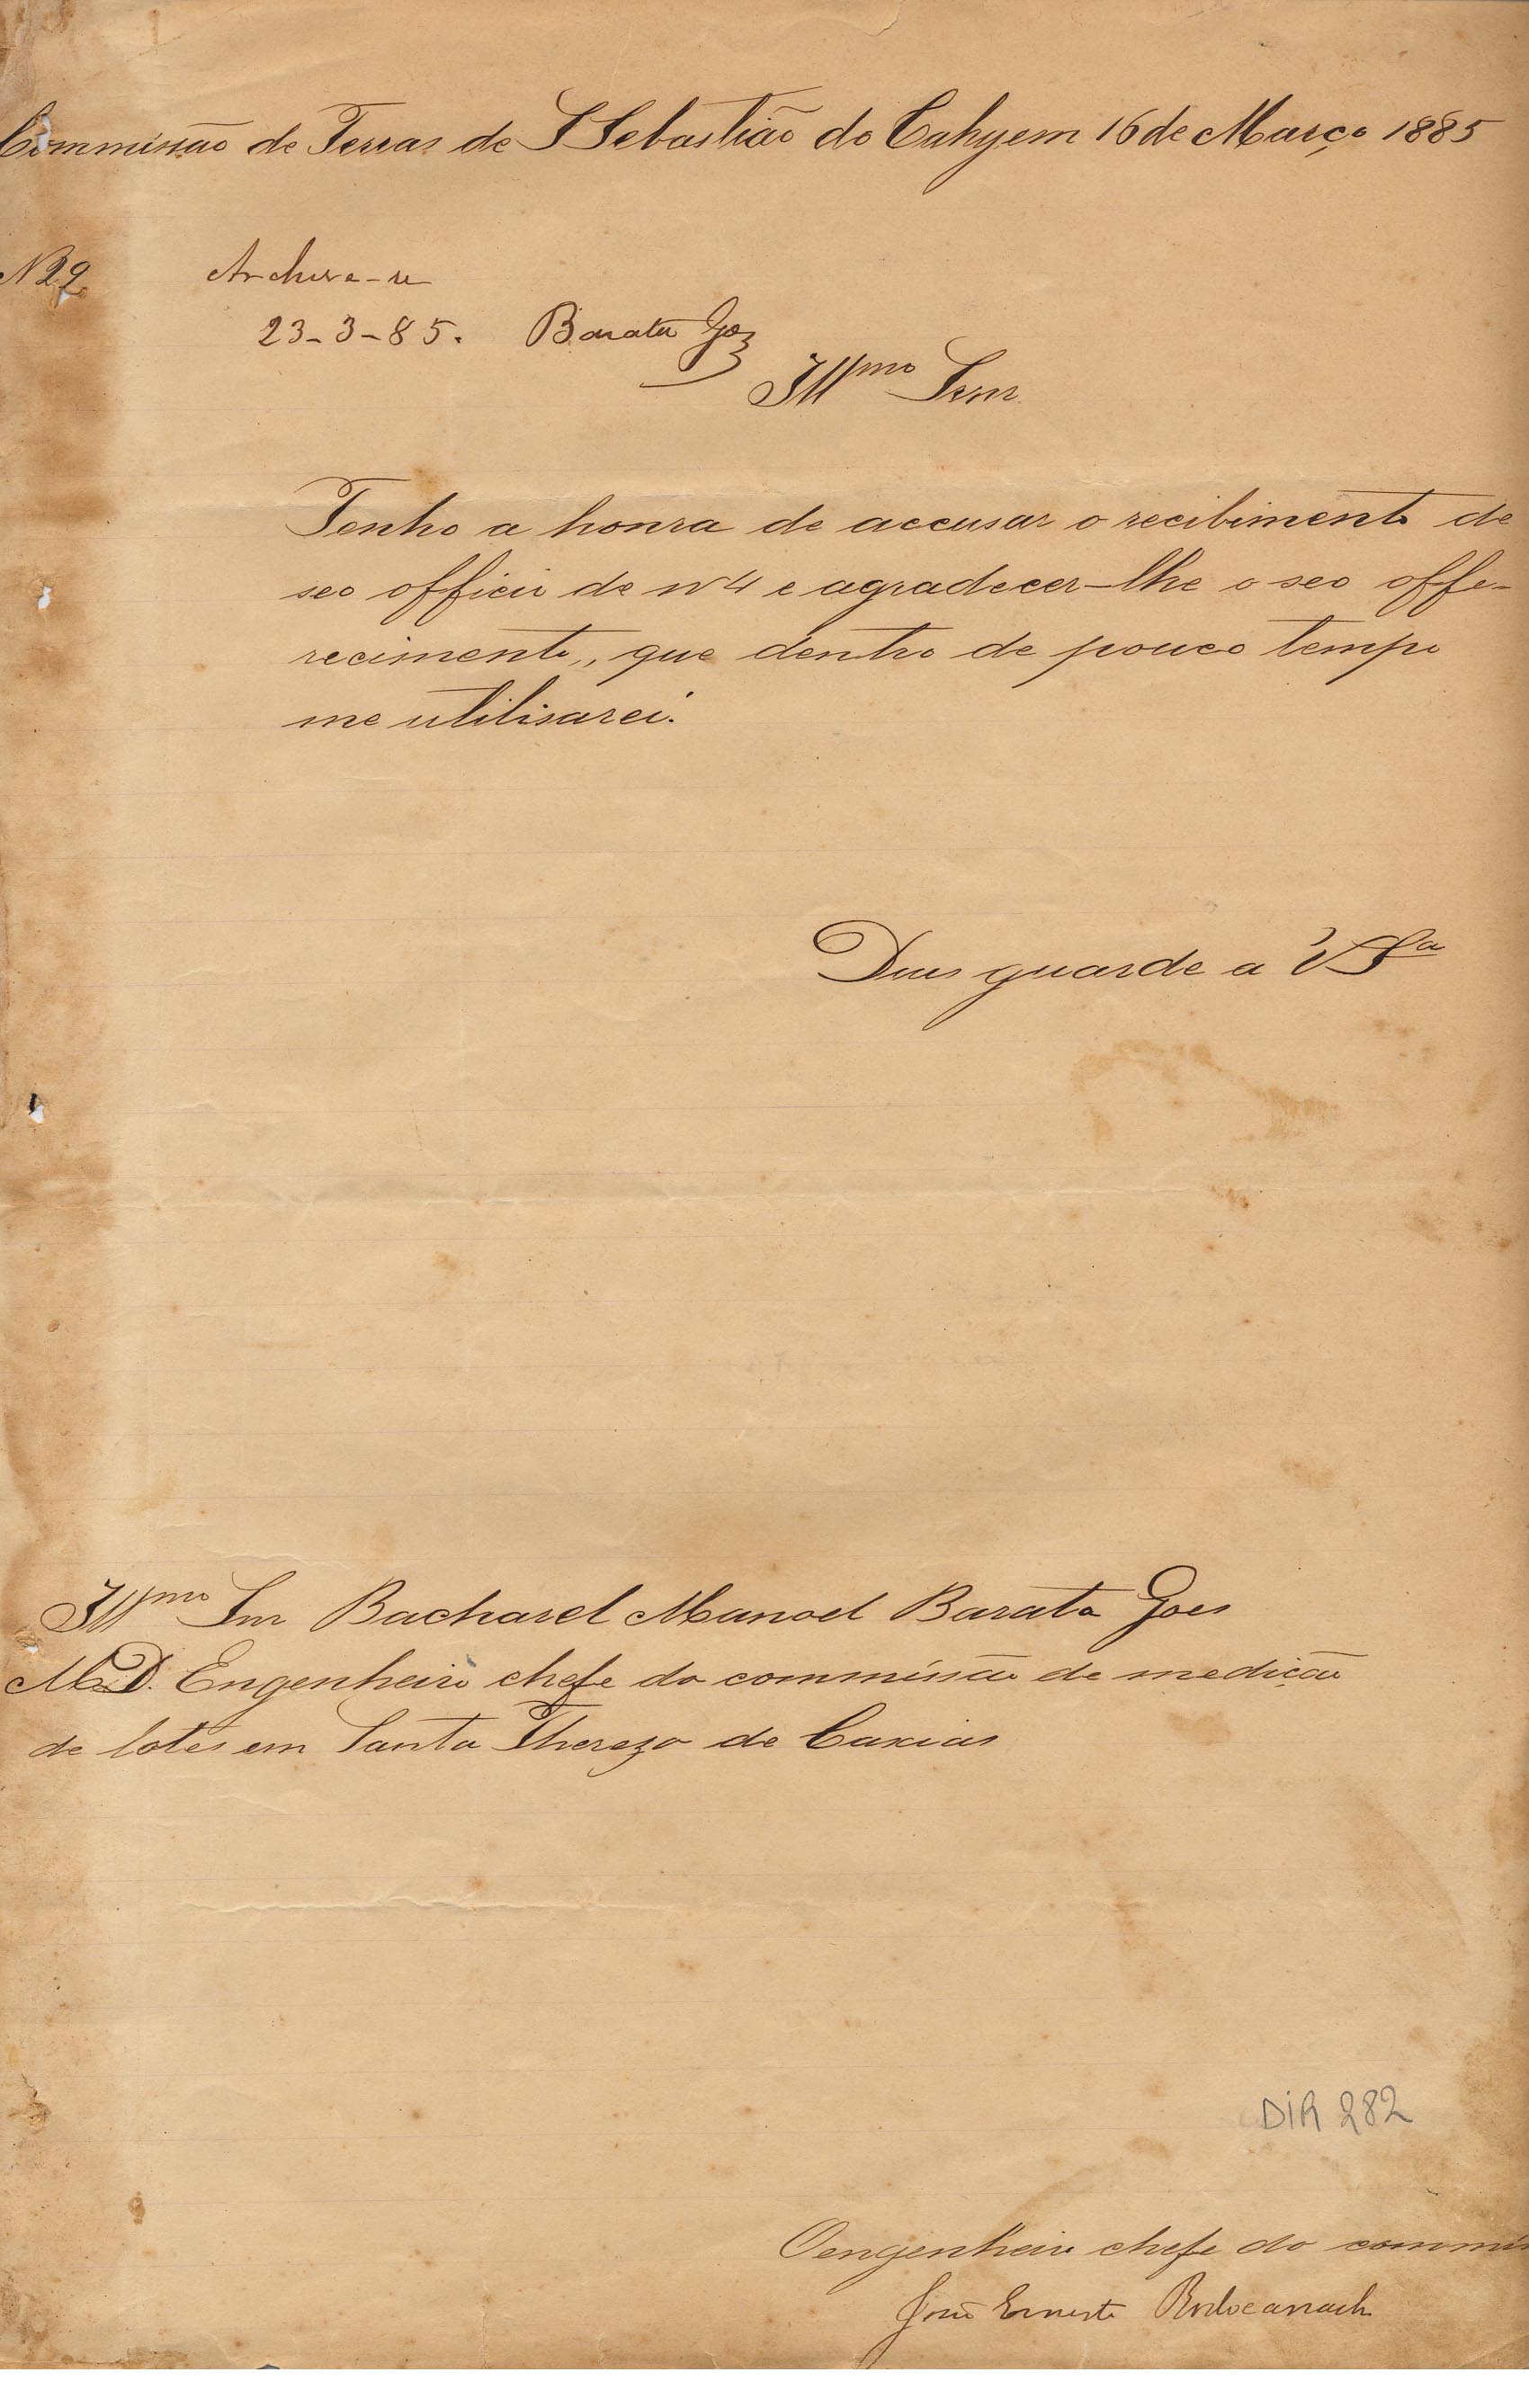 Commissão de Terras de S Sebastião do Cahy em 16 de Março 1885
N 29
Archive-se
23-3-85. Barata Goes
Illmo Senr
Tenho a honra de accusar o recibimento de
seo officio de nº 4 e agradecer-lhe o seo offe-
recimento, que dentro de pouco tempo
me utilisarei.
Deus guarde a VSa
Illmo Snr Bacharel Manoel Barata Goes
M.D. Engenheiro chefe da commissão de medição
de lotes em Santa Thereza de Caxias
DIR 282
O engenheiro chefe da commis
José Ernesto